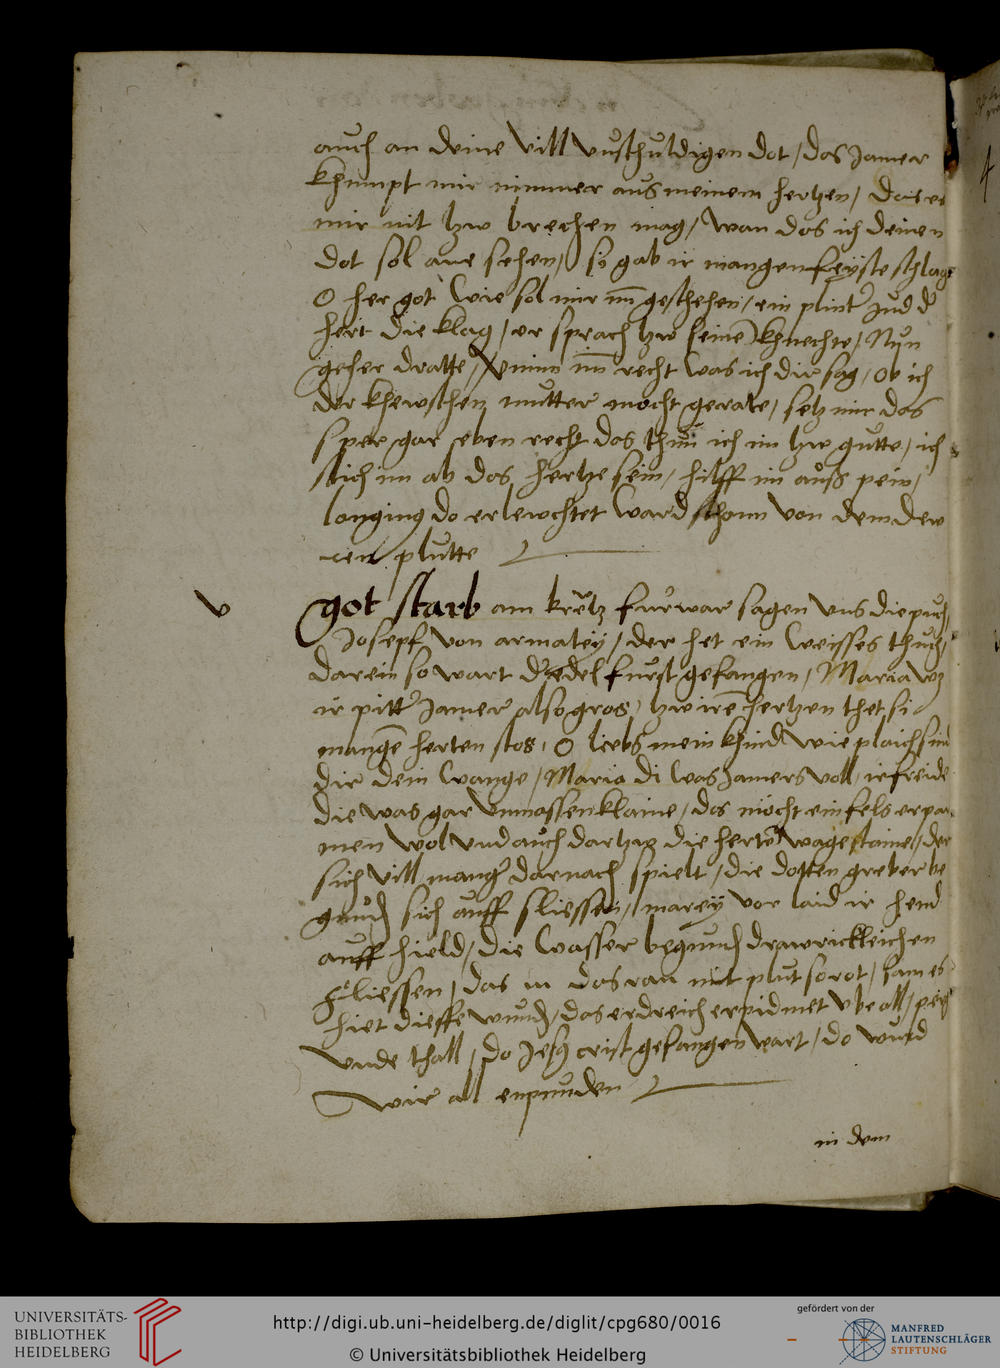 auch an deine vill unschuldigen dot / das jamer
khumpt mir nimmer aus meinem hertzen / das es
mir nit tzw brechen mag / wan das ich deinen
dot sol ane sehen / si gab ir mangen feyste schlag
O her got wie sol mir nu geschehen / ein plinter jud d
hert die klag / er sprach tzw seine khnechte / Nun
geher dratte / vnim nu recht was ich dir sag / ob ich
der khewschen mutter mocht gerate / setz mir das
sper gar eben recht das thun ich im tzw gutte / ich
stich im ab das hertze sein / hilff im auß pein /
longinus do erlewchtet ward schonn von dem dew
ren plutte
v
got starb am krewtz furwar sagen uns die puch
Josepf von armatey / der het ein weisses thuch /
darein so wart der edel furst gefangen / Maria wz
ir pitter jamer also gros / tzw iren hertzen thet si
mange herten stos / O liebs mein khind wie plaich sind
dir dein wange / Maria di was jamers voll / ir freide
die was gar unmassen klaine / das mocht ein fels erpar
men wol und auch dartzw die herte wage staine / der
sich vill manger darnach spielt / die dotten greber be
gund sich auff sliessen / marey vor laid ir hend
auff hield / die wasser begund drawrickleichen
fliessen / das in das ran mit plut so rot / sam es
hiet dieffe wund / das erdreich erpidmet vberall / perg
vnde thall / do Jesus crist gefangen wart / do wurd
wir all enpunden
in dem
UNIVERSITÄTS-
BIBLIOTHEK
HEIDELBERG
http://digi.ub.uni-heidelberg.de/diglit/cpg680/0016
© Universitätsbibliothek Heidelberg
gefördert von der
MANFRED
LAUTENSCHLÄGER
STIFTUNG